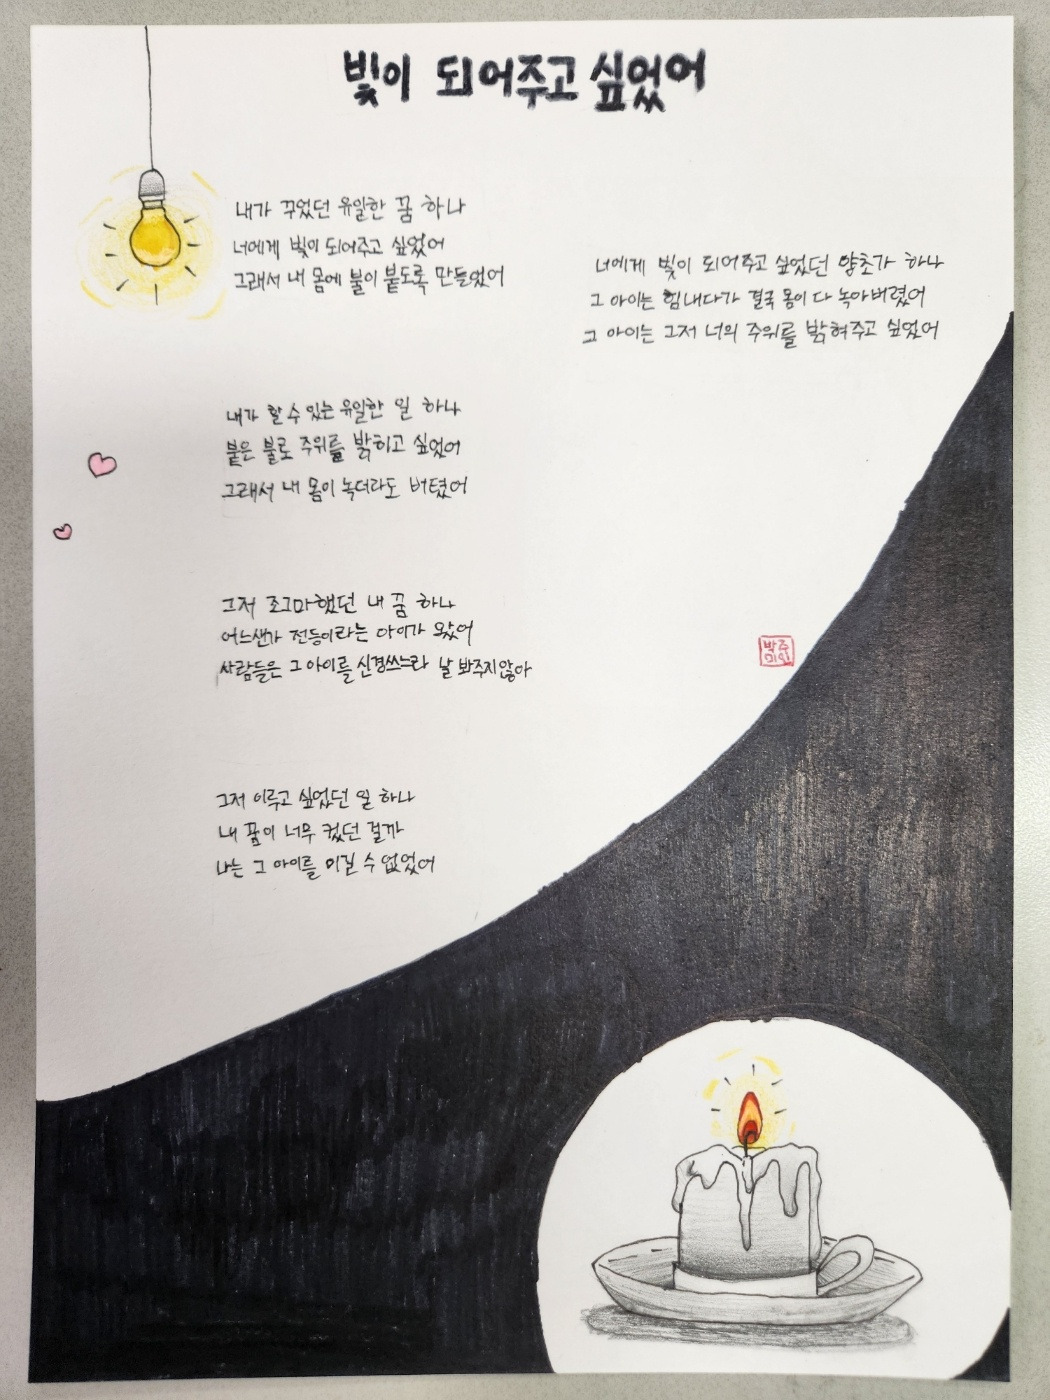 빛이 되어주고 싶었어
내가 꾸었던 유일한 꿈 하나
너에게 빛이 되어주고 싶었어
그래서 내 몸에 불이 붙도록 만들었어
내가 할 수 있는 유일한 일 하나
붙은 불로 주위를 밝히고 싶었어
그래서 내 몸이 녹더라도 버텼어
그저 조그마했던 내 꿈 하나
어느샌가 전등이라는 아이가 왔어
사람들은 그 아이를 신경쓰느라 날 봐주지않아
그저 이루고 싶었던 일 하나
내 꿈이 너무 컸던 걸까
나는 그 아이를 이길 수 없었어
너에게 빛이 되어주고 싶었던 양초가 하나
그 아이는 힘내다가 결국 몸이 다 녹아버렸어
그 아이는 그저 너의 주위를 밝혀주고 싶었어